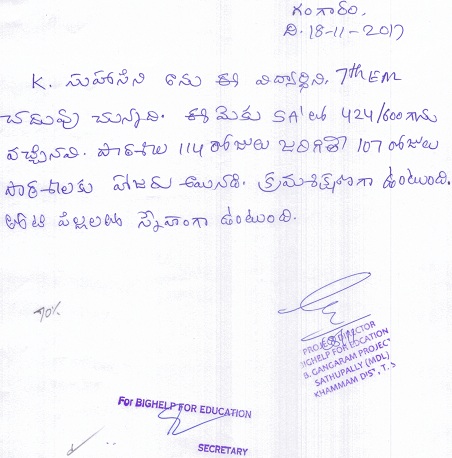 గంగారం,
ది. 18-11-2017
K. సుహాసిని అను ఈ విద్యార్థిని, 7th EM
చదువు చున్నాది. ఈ మెకు SA1లు 424/600 గాను
వచ్చినవి. పాఠశాల 114 రోజులు జరిగితే 107 రోజులు
పాఠశాలకు హాజరు అయినది. క్రమశిక్షణగా ఉంటుంది.
తోటి పిల్లలతో స్నేహంగా ఉంటుంది.
70%
PROJECT DIRECTOR
BIGHELP FOR EDUCATION
B. GANGARAM PROJECT
SATHUPALLY (MDL)
KHAMMAM DIST, T.S
For BIGHELP FOR EDUCATION
SECRETARY